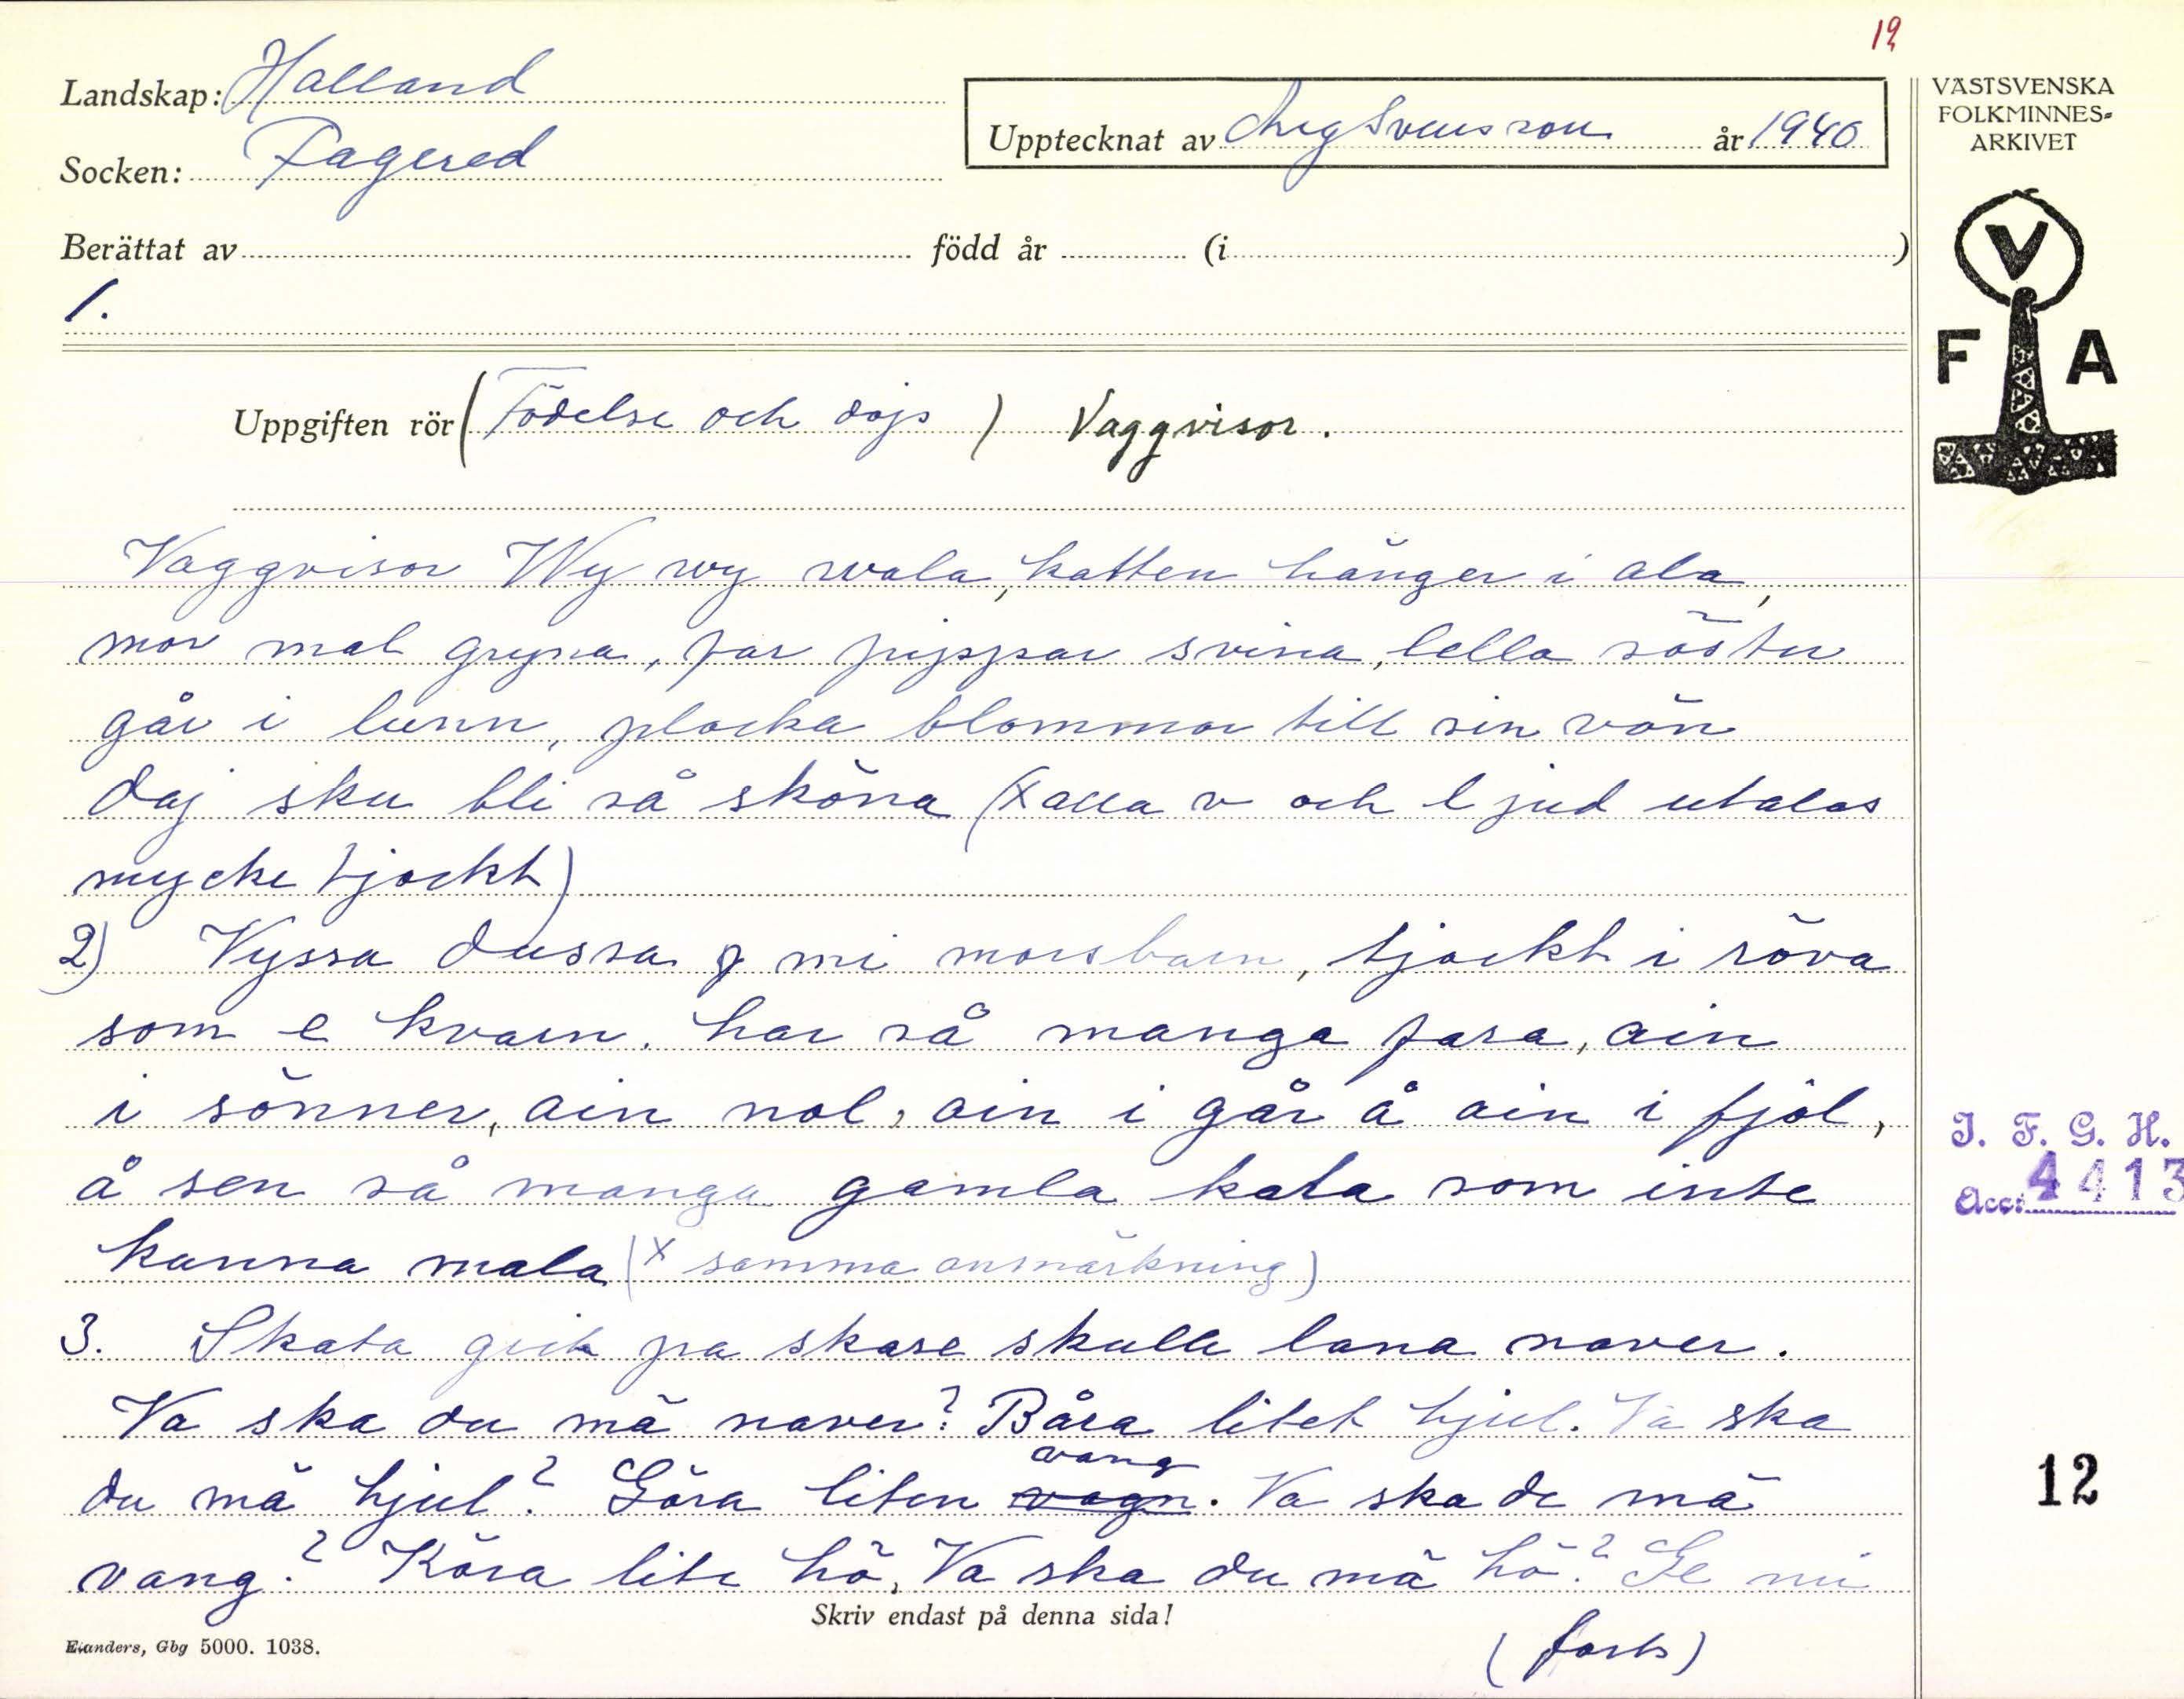 19
Landskap: Halland
Socken: Fagered
Upptecknat av Aug Svensson år 1940
Berättat av född år (i )
1.
Uppgiften rör (Födelse och dop) Vaggvisor.
Vaggvisor Wy wy wala, katten hänger i ala,
mor mal gryna, far pippar svina, lella söster
går i lunn, plocka blommor till sin vän
daj sku bli så sköna (x alla v och l jud utalas
mycke tjockt)
2) Vyssa dussa mi morsbarn, tjockt i röva
som e kvarn. har så manga fara, ain
i sönner, ain nol, ain i går å ain i fjöl,
å sen så manga gamla kala som inte
kanna mala (x samma anmärkning)
3. Skata gick pa skase skulle lana naver.
Va ska du mä naver? Båra litet hjul. Va ska
du mä hjul? Göra liten vagn vang. Va ska de mä
vang? Köra lite hö, Va ska du mä hö? Ge mi
Skriv endast på denna sida!
(forts)
Elanders, Gbg 5000. 1038.
VÄSTSVENSKA
FOLKMINNES-
ARKIVET
V
F A
I. F. G. H.
Acc: 4413
12